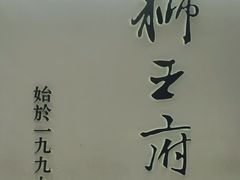 獅王府
始於一九九